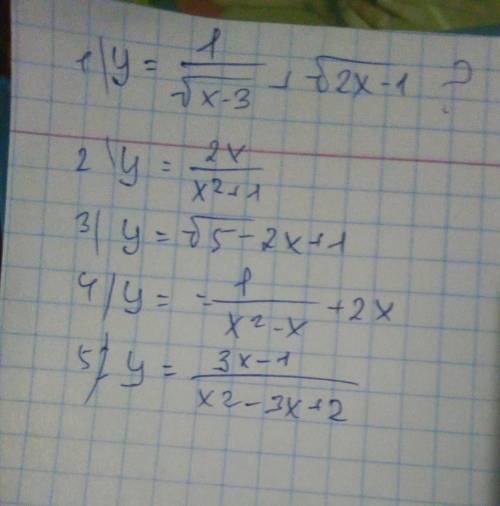 1/ y = 1/√(x-3) + √(2x-1) ?
2\ y = 2x/(x²+1)
3/ y = √5-2x+1
4/ y = -1/(x²-x) +2x
5/ y = (3x-1)/(x²-3x+2)